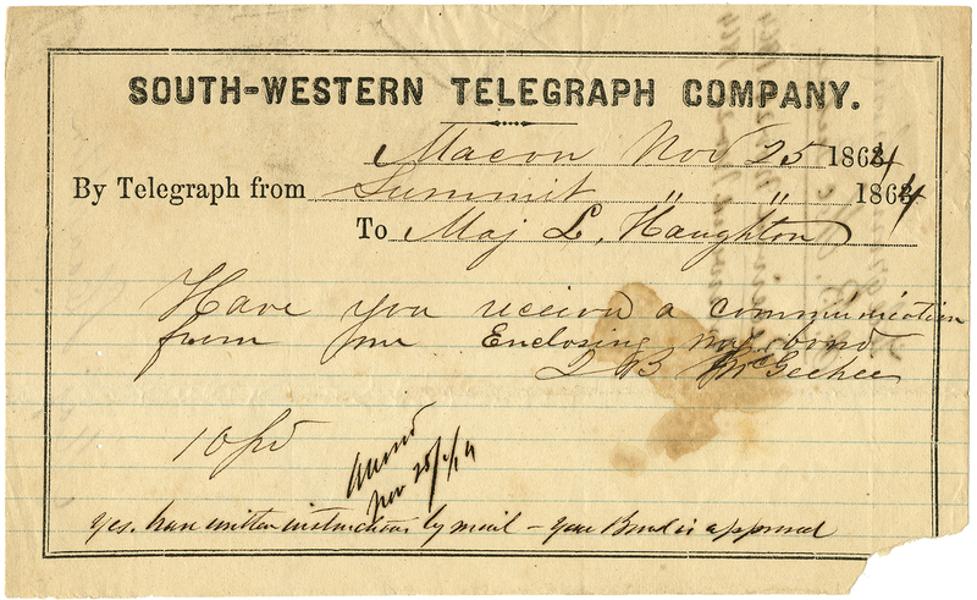 SOUTH-WESTERN TELEGRAPH COMPANY.
Macon Nov 25 1864
By Telegraph from Summit " " 1864
To Maj L. Haughton
Have you received a communication
from me Enclosing my bond
McGeehee
10 pd
Nov 25/64
Yes. have written instructions by mail - your Bond is approved